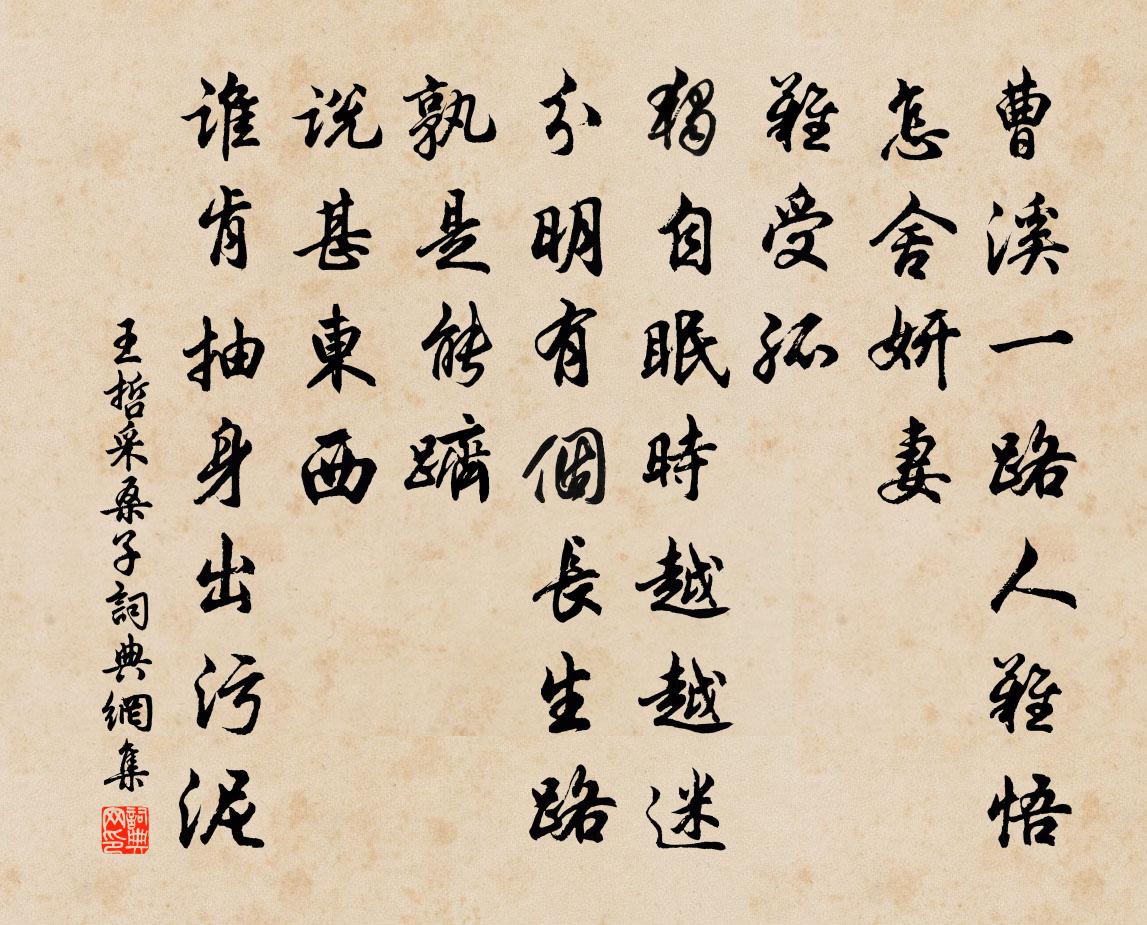 曹溪一路人難悟
怎舍妍妻
難受孤
獨自眠時越越迷
分明有個長生路
孰是能躋
說甚東西
誰肯抽身出污泥
王哲采桑子詞典網集
詞典网印